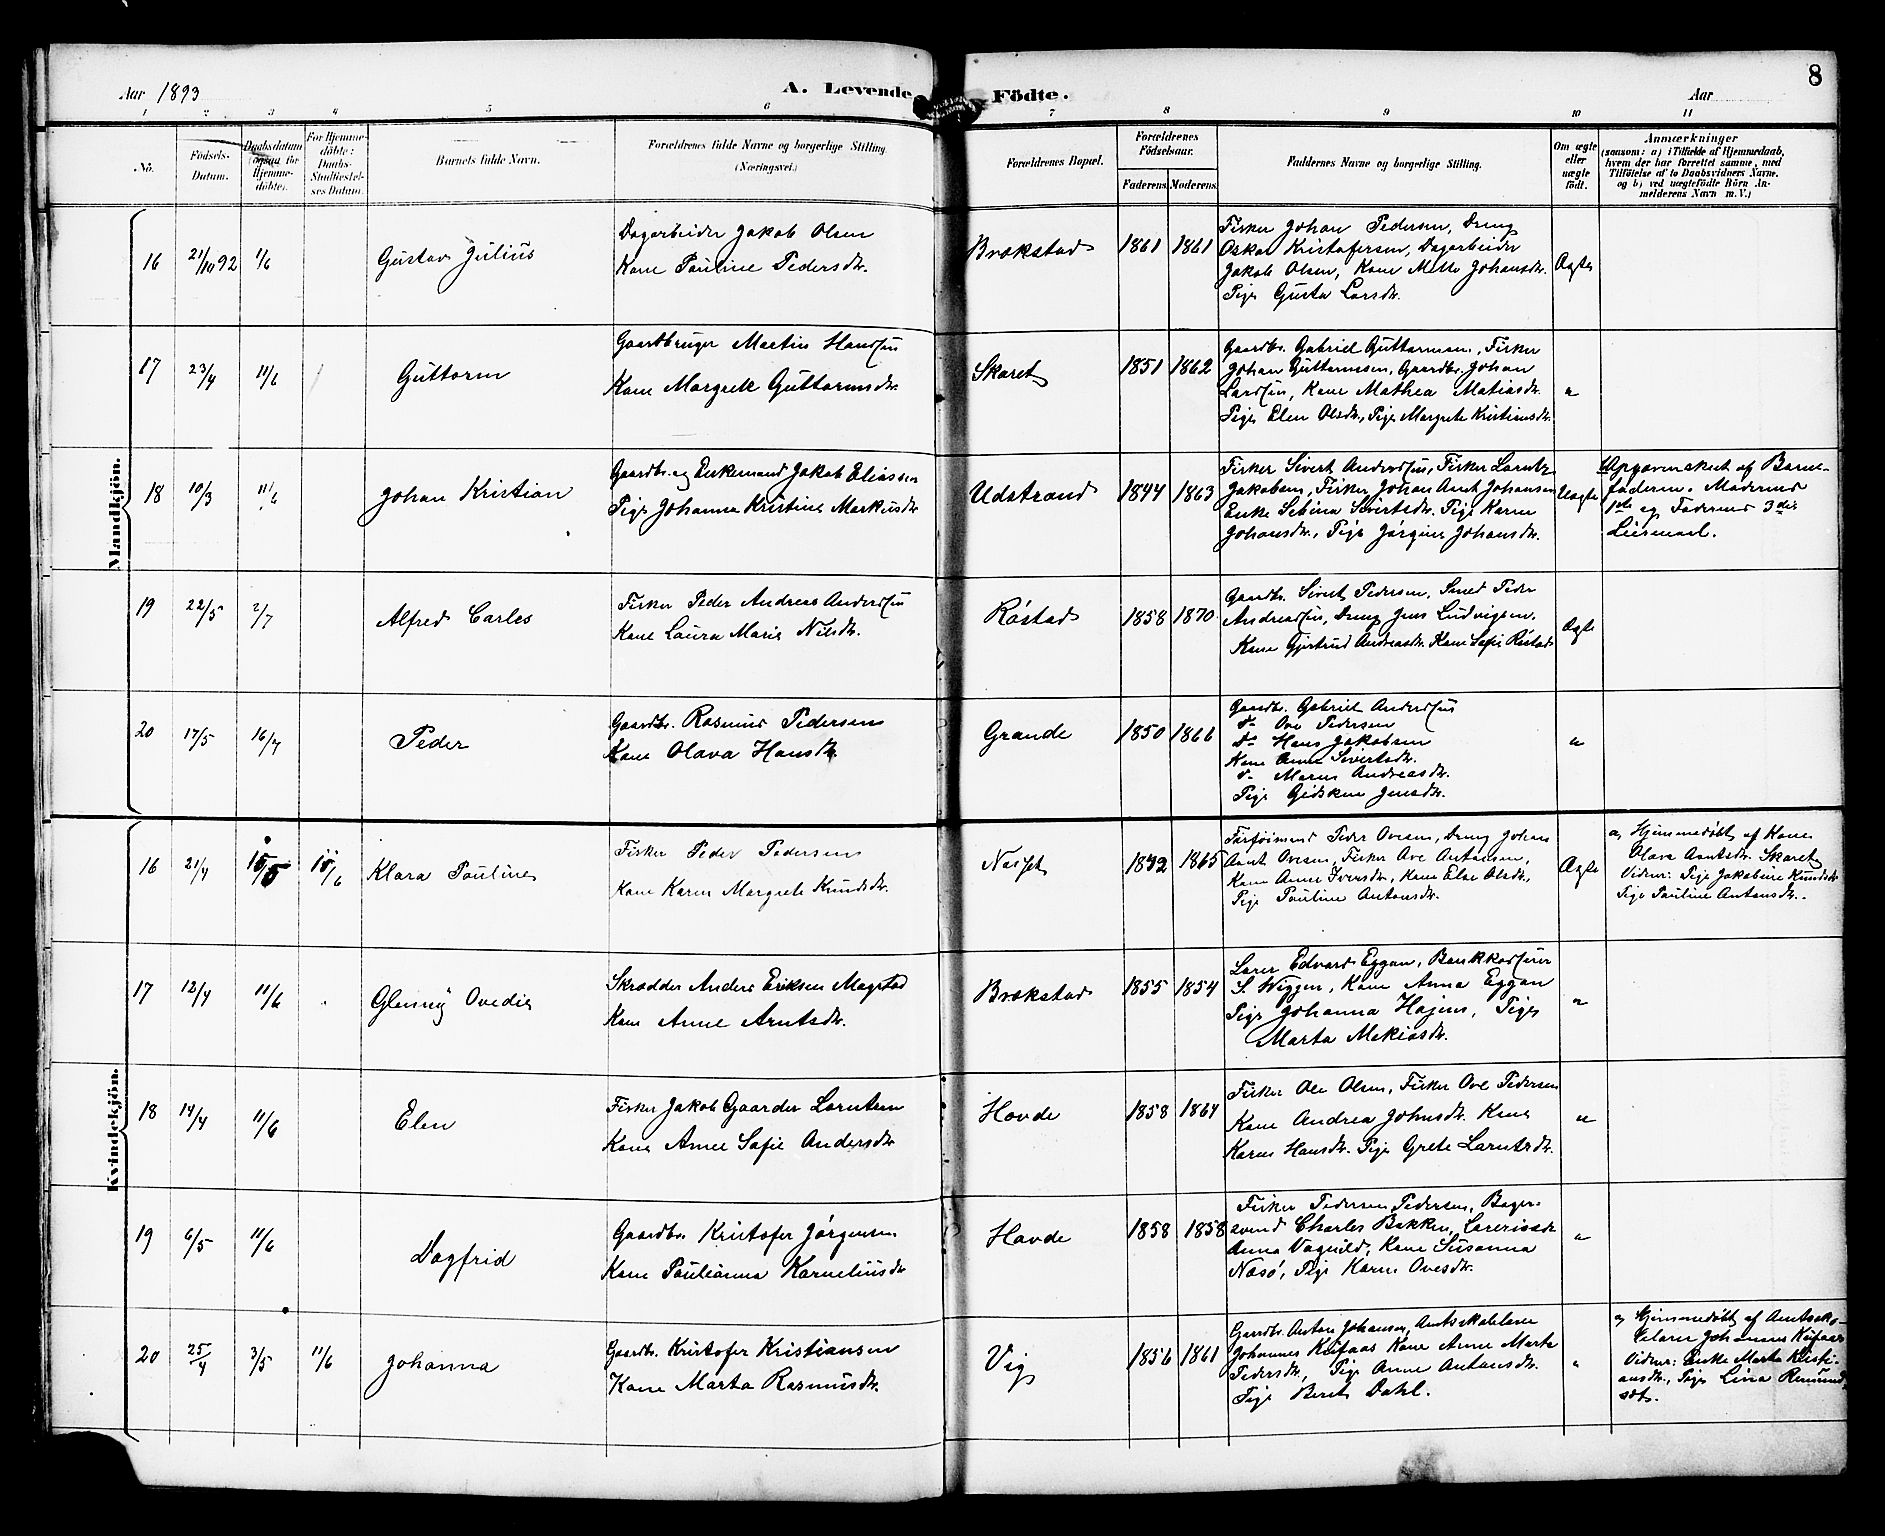 8
Aar 1893
A. Levende Födte.
Aar
1 2 3 4 5 6 7 8 9 10 11
No.
Födsels-Datum.
Daabsdatum (ogsaa for Hjemmedöbte).
For Hjemmedöbte: Daabs-Stadfæstelses Datum.
Barnets fulde Navn.
Forældrenes fulde Navne og borgerlige Stilling
(Næringsvei.)
Forældrenes Bopæl.
Forældrenes Födselsaar.
Faderens. Moderens.
Faddernes Navne og borgerlige Stilling.
Om ægte eller uægte født.
Anmærkninger
(saasom: a) i Tilfælde af Hjemmedaab,
hvem der har forrettet samme, med
Tilføielse af to Daabsvidners Navne.
og b) ved uægtefödte Börn An-
melderens Navn m. V.)
Mandkjön.
16 21/10 92 1/6 Gustav Julius
Dagarbeider Jakob Olsen
Kone Pauline Pedersdtr.
Brækstad 1861 1861
Fisker Johan Pedersen, Dreng
Oskar Kristofersen, Dagarbeider
Jakob Olsen, Kone Mette Johansdtr.
Pige Gusta Larsdtr.
Ægte
17 23/4 11/6 Guttorm
Gaardbruger Martin Hansen
Kone Margrete Guttormsdtr.
Skaret 1851 1862
Gaardbr. Gabriel Guttormsen, Fisker
Johan Guttormsen, Gaardbr. Johan
Larssen, Kone Mathea Matiasdtr.
Pige Elen Olsdtr., Pige Margrete Kristiansdtr.
"
18 10/3 11/6 Johan Kristian
Gaardbr. og Enkemand Jakob Eliassen
Pige Johanna Kristine Markusdtr.
Udstrand 1844 1863
Fisker Sivert Anderssen, Fisker Lorents
Jakobsen, Fisker Johan Arnt Johansen
Enke Sebina Sivertsdtr. Pige Karen
Johansdtr., Pige Jørgine Johansdtr.
Uægte
Opgavenskeet af Barne-
faderen. Moderens
1ste og Faderens 3die
Leiermaal.
19 22/5 2/7 Alfred Carles
Fisker Peder Andreas Anderssen
Kone Laura Marie Nilsdtr.
Røstad 1858 1870
Gaardbr. Sivert Pedersen, Smed Peder
Andreassen, Dreng Jens Ludvigsen.
Kone Gjertrud Andreasdtr. Kone Sofie Røstad
Ægte
20 17/5 16/7 Peder
Gaardbr. Rasmus Pedersen
Kone Olava Hansdtr.
Grande 1850 1866
Gaardbr. Gabriel Anderssen
do Ove Pedersen
Do Hans Jakobsen
Kone Anne Sivertsdtr.
do Maren Andreasdtr.
Pige Gidsken Jensdtr.
"
Kvindekjön.
16 21/4 15/5 18/6 Klara Pauline
Fisker Peder Pedersen
Kone Karen Margrete Knudsdtr.
Næsset 1842 1865
Peder Ovesen, Dreng Johan
Arnt Ovesen, Fisker Ove Antonsen,
Kone Anne Iversdtr., Kone Else Olsdtr.,
Pige Pauline Antonsdtr.
Ægte
a, Hjemmedøbt af Kone
Olava Arntsdtr. Skaret
Vidner: Pige Jakobine Knudsdtr.
Pige Pauline Antonsdtr.
17 12/4 11/6 Glenny Ovedie
Skrædder Anders Eriksen Magstad
Kone Anne Arntsdtr.
Brækstad 1855 1854
Lærer Edvard Eggan, Bankkasserer
S. Wiggen, Kone Anna Eggan
Pige Johanna Højem, Pige
Marta Mekiasdtr.
"
18 14/4 11/6 Elen
Fisker Jakob Gaarder Lorntsen
Kone Anne Sofie Andersdtr.
Hovde 1858 1864
Fisker Ole Olsen, Fisker Ove Pedersen
Kone Andrea Johnsdtr. Kone
Karen Hansdtr. Pige Grete Lorntsdtr.
"
19 6/5 11/6 Dagfrid
Gaardbr. Kristofer Jørgensen
Kone Paulianna Korneliusdtr.
Hovde 1858 1858
Fisker Pedersen Pedersen, Bager-
svend Charles Bakken, Lærerinde
Anna Vagnild, Kone Susanna
Næsø, Pige Karen Ovesdtr.
"
20 25/4 3/5 11/6 Johanna
Gaardbr. Kristofer Kristiansen
Kone Marta Rasmusdtr.
Vig 1856 1861
Gaardbr. Anton Johansen, Amtsskolelærer
Johannes Kufaas Kone Anne Marta
Pedersdtr., Pige Anne Antonsdtr.
Pige Beret Dahl.
"
a, Hjemmedøbt af Amtssko-
lelærer Johannes Kufaas
Vidner: Enke Marta Kristi-
ansdtr., Pige Lina Remund-
sdt.